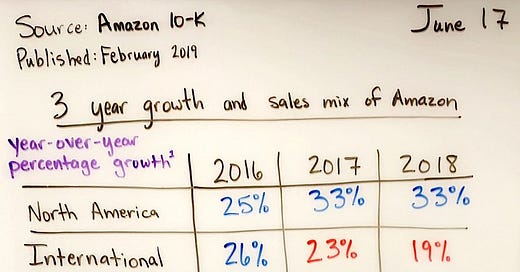 Source: Amazon 10-K
June 17
Published: February 2019
3 year growth and sales mix of Amazon
Year-over-year
percentage growth²
2016 2017 2018
North America 25% 33% 33%
International 26% 23% 19%